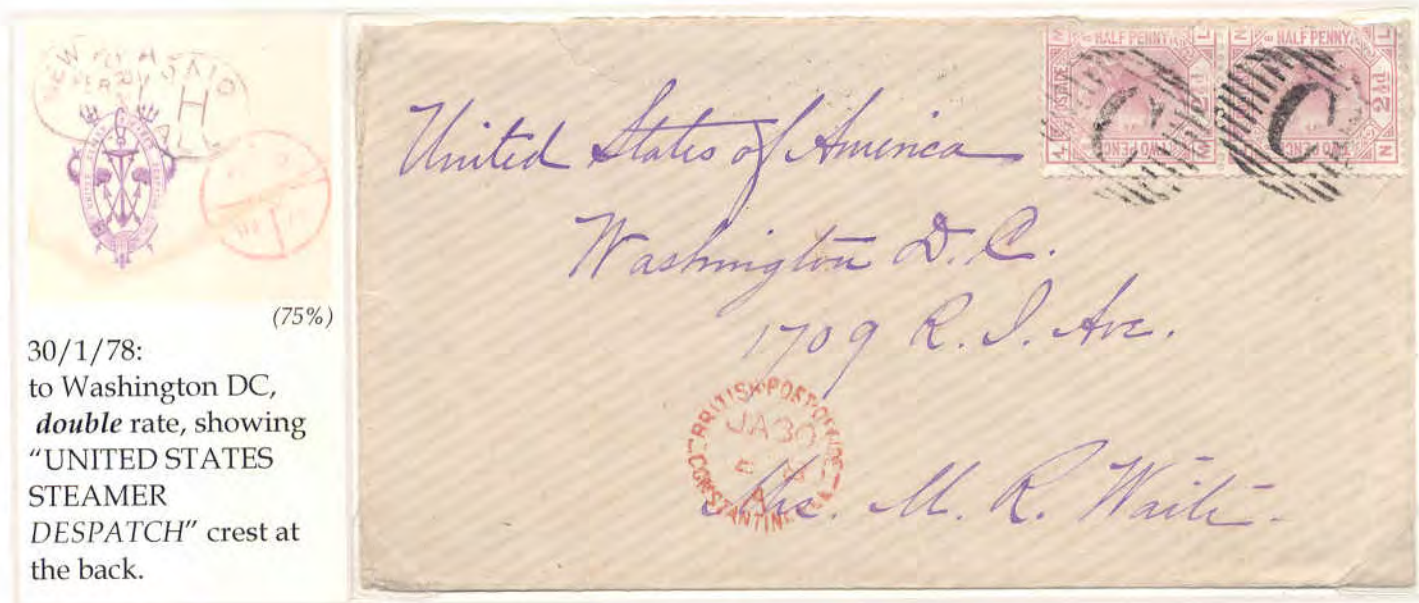 (75%)
30/1/78:
to Washington DC,
double rate, showing
“UNITED STATES
STEAMER
DESPATCH” crest at
the back.
HALF PENNY
HALF PENNY
2½d
2½d
C
C
United States of America
Washington D. C.
1709 R. I. Ave.
BRITISH POST OFFICE
JA 30
A
CONSTANTINOPLE
Mrs. M. R. Waite.